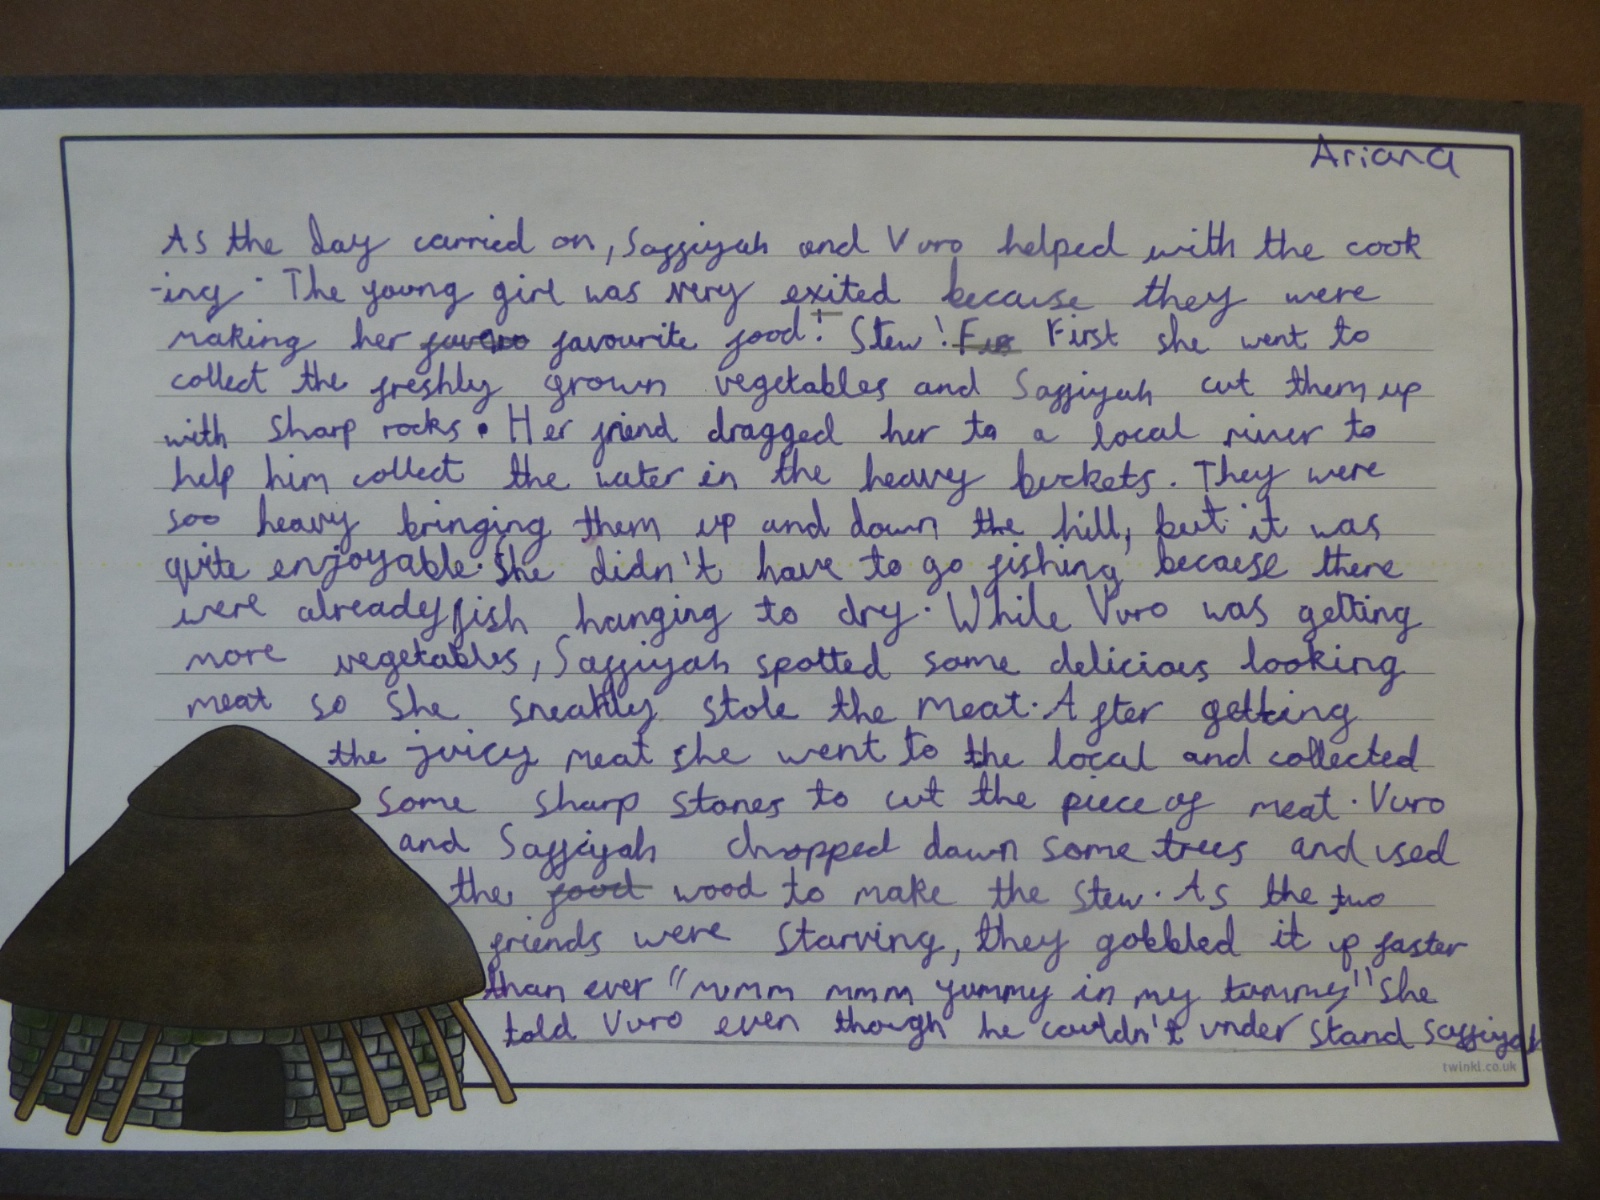 Ariana
As the day carried on, Saffiyah and Vuro helped with the cook
-ing. The young girl was very exited because they were
making her favourite food! Stew! First she went to
collect the freshly grown vegetables and Saffiyah cut them up
with sharp rocks. Her friend dragged her to a local river to
help him collect the water in the heavy buckets. They were
soo heavy bringing them up and down the hill, but it was
quite enjoyable. She didn't have to go fishing because there
were already fish hanging to dry. While Vuro was getting
more vegetables, Saffiyah spotted some delicious looking
meat so she sneakily stole the meat. After getting
the juicy meat she went to the local and collected
some sharp stones to cut the piece of meat. Vuro
and Saffiyah chopped down some trees and used
the food wood to make the stew. As the two
friends were starving, they gobbled it up faster
than ever "mmm mmm yummy in my tummy" She
told Vuro even though he couldn't under stand Saffiyah
twinkl.co.uk